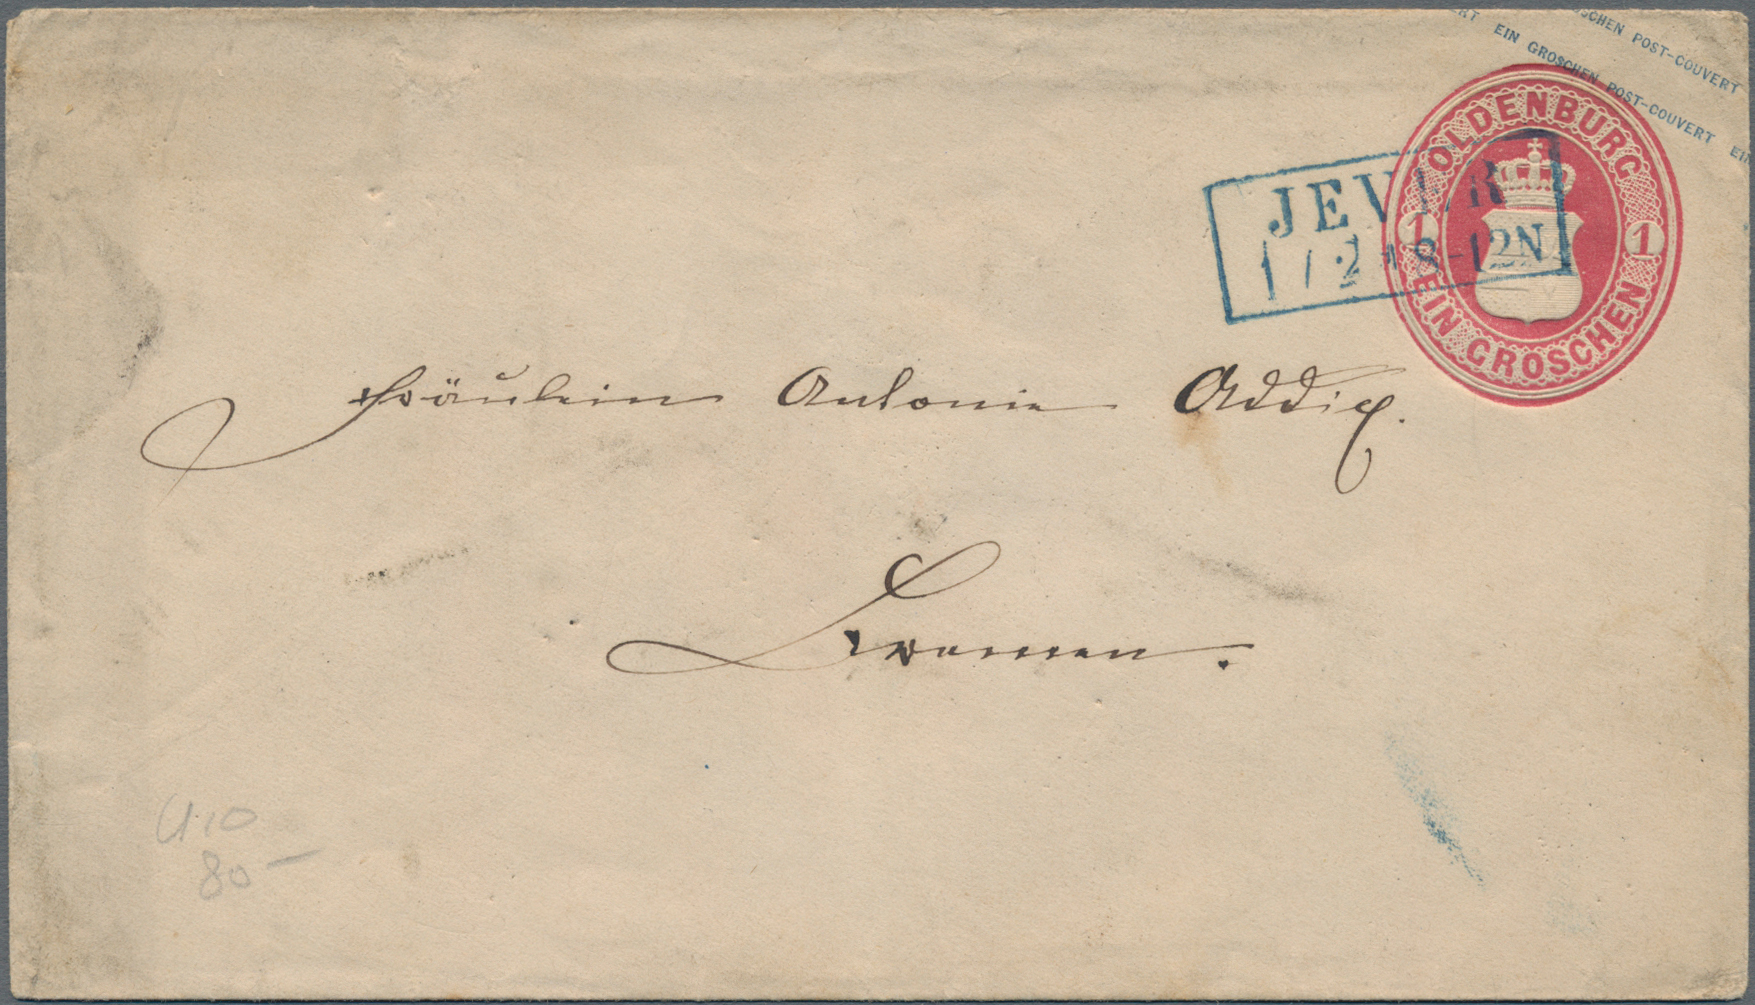 SCHEN POST-COUVERT
EIN GROSCHEN POST-COUVERT EIN
OLDENBURG
1 1
EIN GROSCHEN
JEVER
1/2 * 8-12N
Fräulein Antonie Addix.
Bremen.
U.10
80-